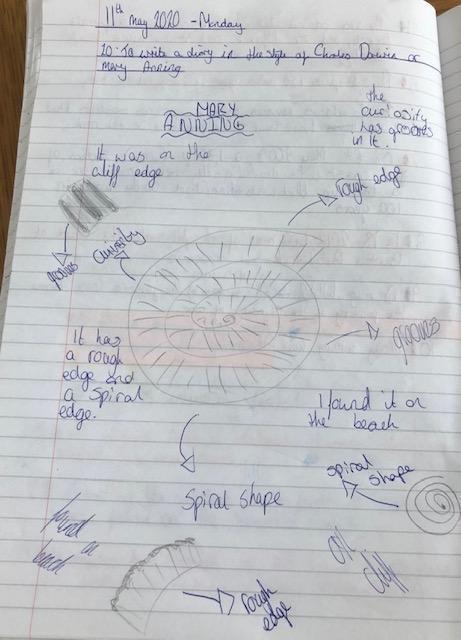 11th May 2020 - Monday
LO: To write a diary in the style of Charles Darwin or
Mary Anning
MARY
ANNING
the
curiosity
has grooves
in it.
It was on the
cliff edge
rough edge
grooves
curiosity
grooves
It has
a rough
edge and
a spiral
edge.
I found it on
the beach
spiral
shape
Spiral shape
found on
beach
on
cliff
rough
edge